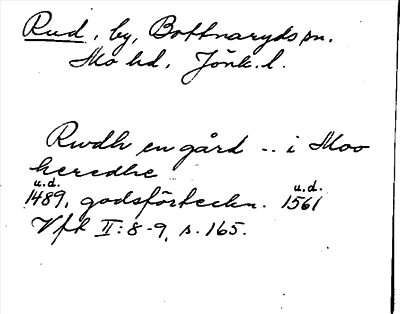 Rud, by, Bottnaryds sn.
Mo hd, Jönk. l.
Rwdh en gård -- i Moo
heredhe
u.d. u.d.
1489, godsförteckn. 1561
Vft II:8-9, s. 165.